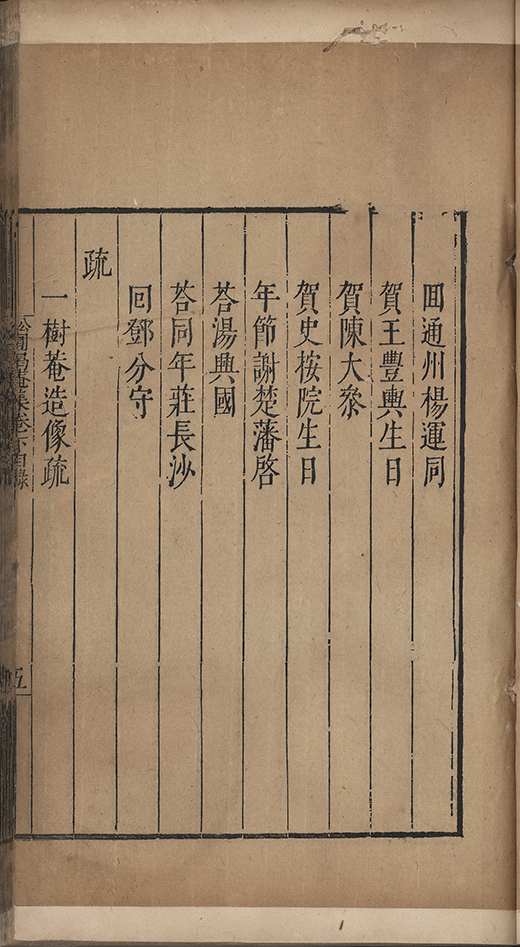 囬通州楊運同
賀王豐輿生日
賀陳大叅
賀史按院生日
年節謝楚藩啓
荅湯興國
荅同年莊長沙
囘鄧分守
疏
一樹菴造像疏
集卷下目錄
五